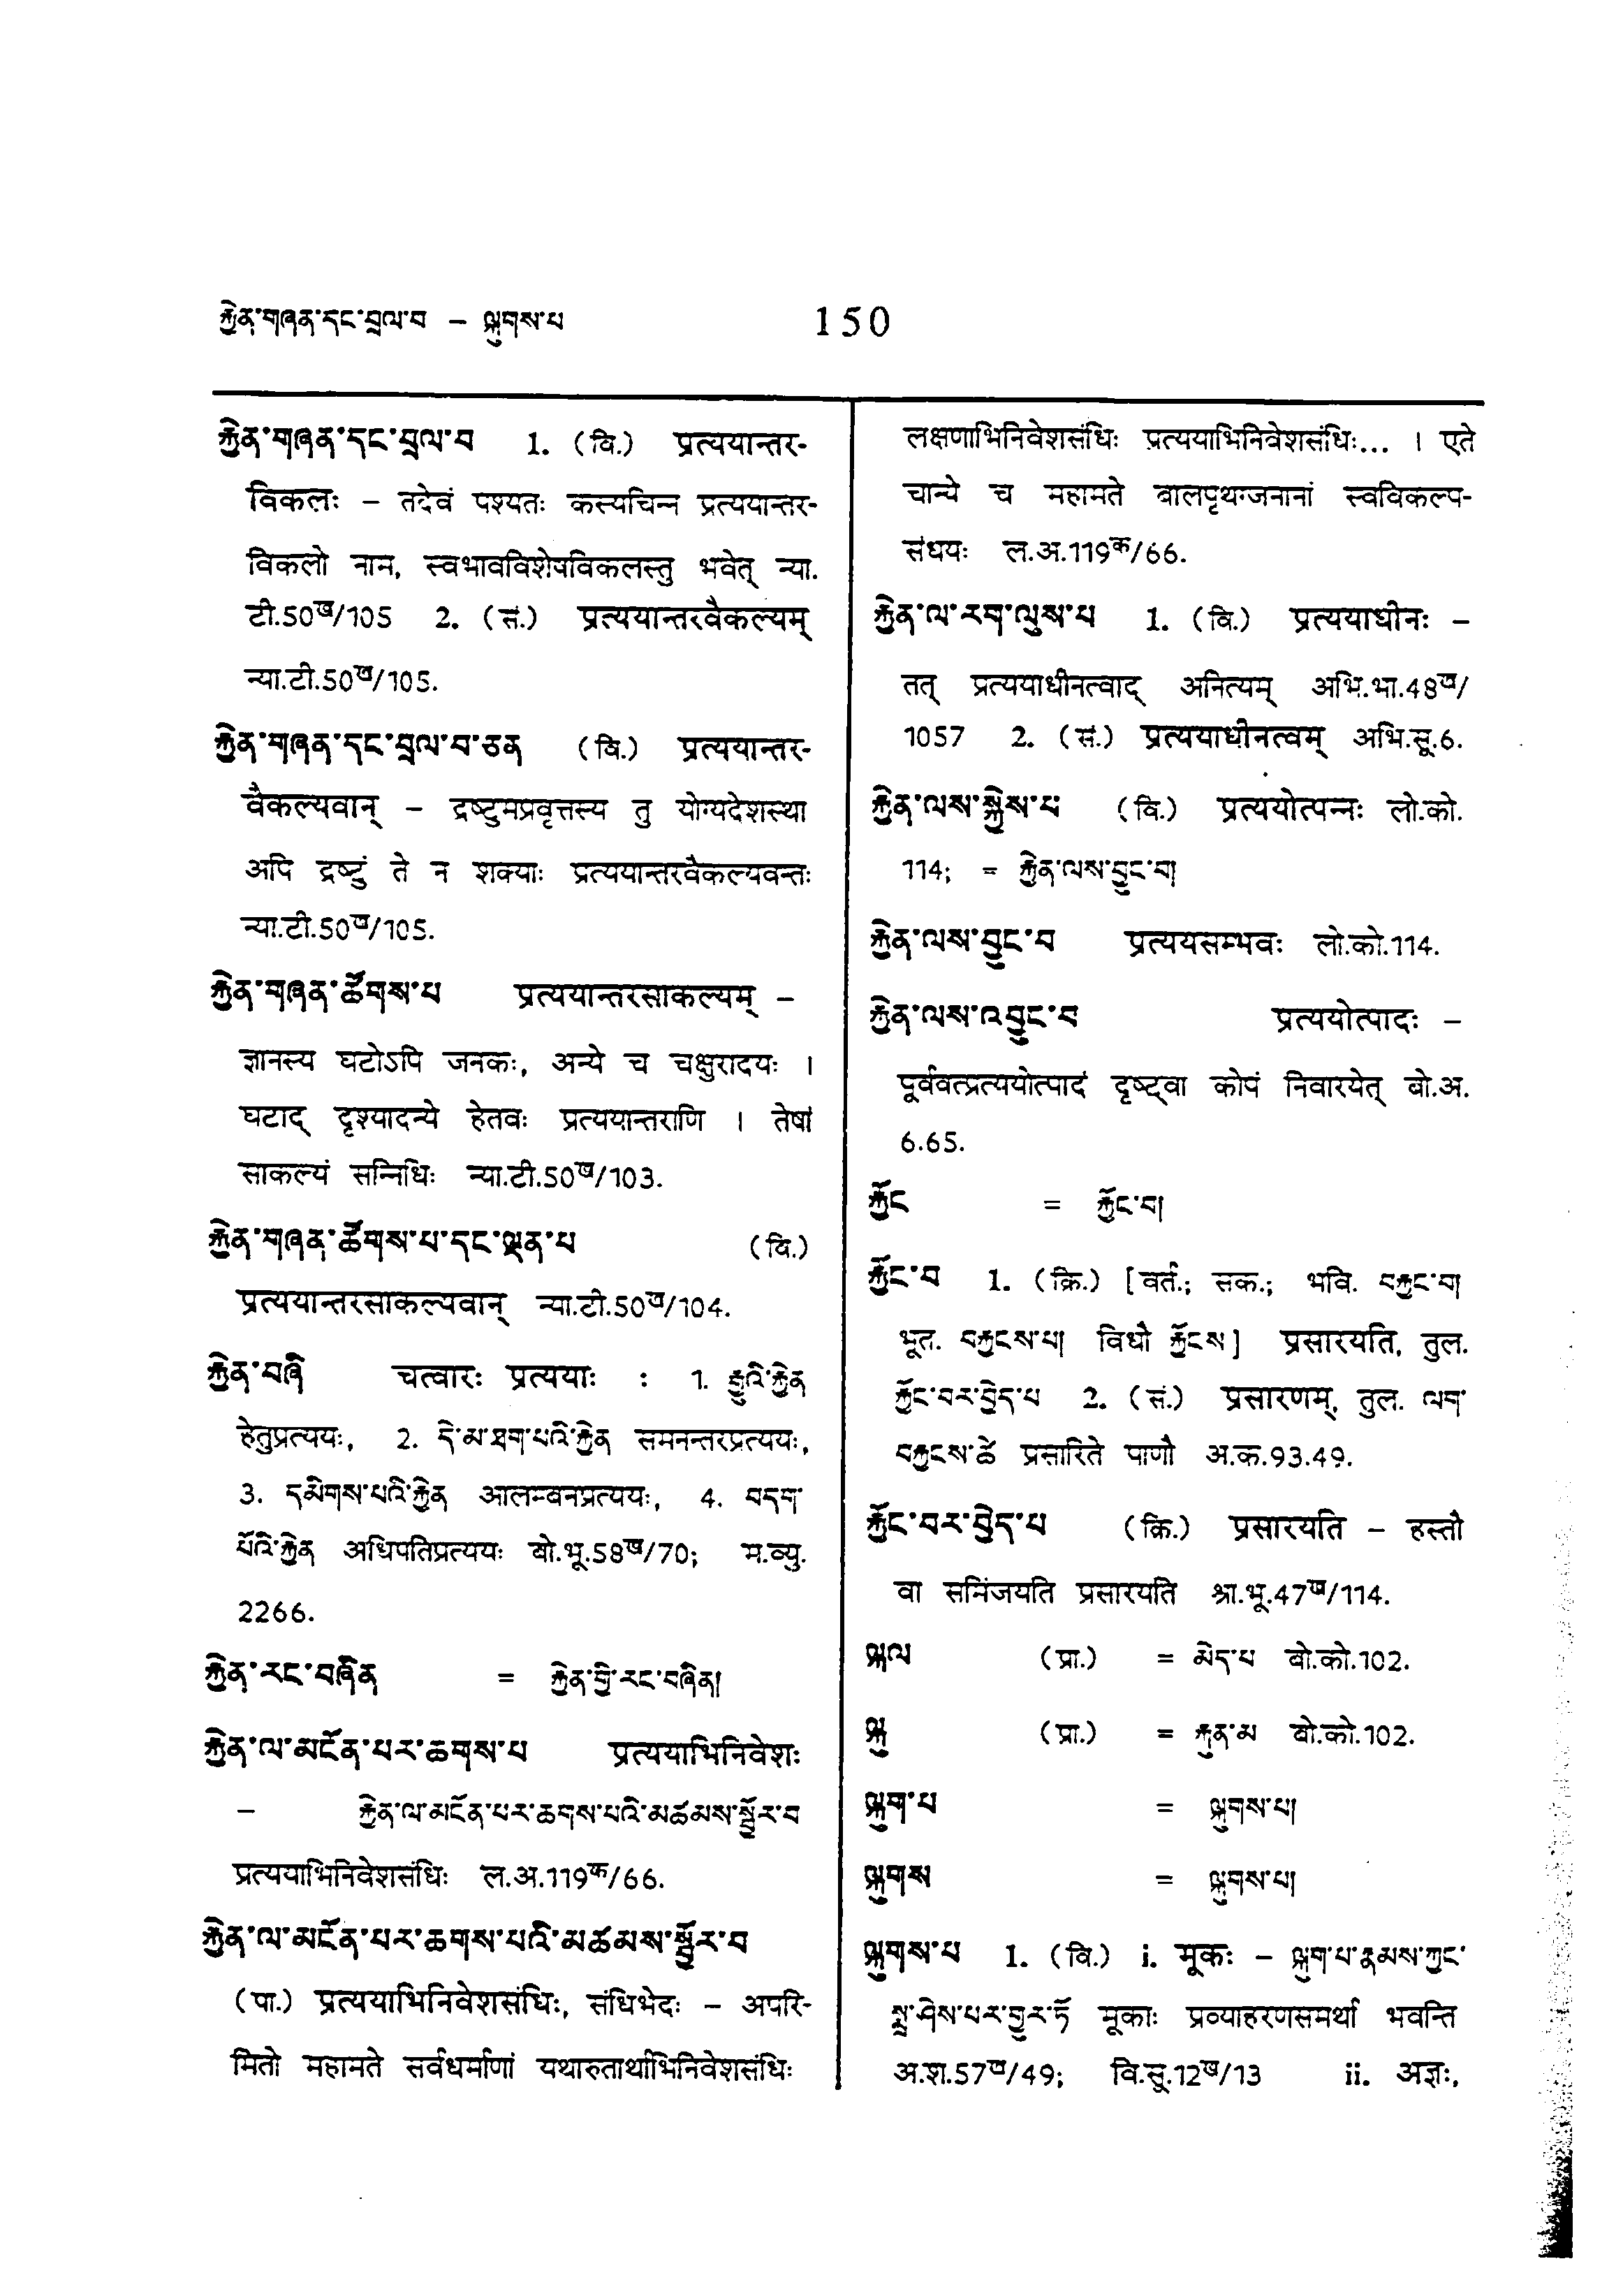 རྐྱེན་གཞན་དང་བྲལ་བ – ལྐུགས་པ 150
རྐྱེན་གཞན་དང་བྲལ་བ 1. (वि.) प्रत्ययान्तर-
विकलः – तदेवं पश्यतः कस्यचिन्न प्रत्ययान्तर-
विकलो नाम, स्वभावविशेषविकलस्तु भवेत् न्या.
टी.50ख/105 2. (सं.) प्रत्ययान्तरवैकल्यम्
न्या.टी.50ख/105.
རྐྱེན་གཞན་དང་བྲལ་བ་ཅན (वि.) प्रत्ययान्तर-
वैकल्यवान् – द्रष्टुमप्रवृत्तस्य तु योग्यदेशस्था
अपि द्रष्टुं ते न शक्याः प्रत्ययान्तरवैकल्यवन्तः
न्या.टी.50ख/105.
རྐྱེན་གཞན་ཚོགས་པ प्रत्ययान्तरसाकल्यम् –
ज्ञानस्य घटोऽपि जनकः, अन्ये च चक्षुरादयः ।
घटाद् दृश्यादन्ये हेतवः प्रत्ययान्तराणि । तेषां
साकल्यं सन्निधिः न्या.टी.50ख/103.
རྐྱེན་གཞན་ཚོགས་པ་དང་ལྡན་པ (वि.)
प्रत्ययान्तरसाकल्यवान् न्या.टी.50ख/104.
རྐྱེན་བཞི चत्वारः प्रत्ययाः : 1. རྒྱུའི་རྐྱེན
हेतुप्रत्ययः, 2. དེ་མ་ཐག་པའི་རྐྱེན समनन्तरप्रत्ययः,
3. དམིགས་པའི་རྐྱེན आलम्बनप्रत्ययः, 4. བདག་
པོའི་རྐྱེན अधिपतिप्रत्ययः बो.भू.58ख/70; म.व्यु.
2266.
རྐྱེན་རང་བཞིན = རྐྱེན་གྱི་རང་བཞིན།
རྐྱེན་ལ་མངོན་པར་ཆགས་པ प्रत्ययाभिनिवेशः
– རྐྱེན་ལ་མངོན་པར་ཆགས་པའི་མཚམས་སྦྱོར་བ
प्रत्ययाभिनिवेशसंधिः ल.अ.119क/66.
རྐྱེན་ལ་མངོན་པར་ཆགས་པའི་མཚམས་སྦྱོར་བ
(पा.) प्रत्ययाभिनिवेशसंधिः, संधिभेदः – अपरि-
मितो महामते सर्वधर्माणां यथारुतार्थाभिनिवेशसंधिः
लक्षणाभिनिवेशसंधिः प्रत्ययाभिनिवेशसंधिः... । एते
चान्ये च महामते बालपृथग्जनानां स्वविकल्प-
संधयः ल.अ.119क/66.
རྐྱེན་ལ་རག་ལུས་པ 1. (वि.) प्रत्ययाधीनः –
तत् प्रत्ययाधीनत्वाद् अनित्यम् अभि.भा.48ख/
1057 2. (सं.) प्रत्ययाधीनत्वम् अभि.सू.6.
རྐྱེན་ལས་སྐྱེས་པ (वि.) प्रत्ययोत्पन्नः लो.को.
114; = རྐྱེན་ལས་བྱུང་བ།
རྐྱེན་ལས་བྱུང་བ प्रत्ययसम्भवः लो.को.114.
རྐྱེན་ལས་འབྱུང་བ प्रत्ययोत्पादः –
पूर्ववत्प्रत्ययोत्पादं दृष्ट्वा कोपं निवारयेत् बो.अ.
6.65.
རྐྱོང = རྐྱོང་བ།
རྐྱོང་བ 1. (क्रि.) [वर्त.; सक.; भवि. བརྐྱང་བ།
भूत. བརྐྱངས་པ། विधौ རྐྱོངས] प्रसारयति, तुल.
རྐྱོང་བར་བྱེད་པ 2. (सं.) प्रसारणम्, तुल. ལག་
བརྐྱངས་ཚེ प्रसारिते पाणौ अ.क.93.49.
རྐྱོང་བར་བྱེད་པ (क्रि.) प्रसारयति – हस्तौ
वा समिंजयति प्रसारयति श्रा.भू.47ख/114.
ལྐལ (प्रा.) = མེད་པ बो.को.102.
ལྐུ (प्रा.) = རྐུན་མ बो.को.102.
ལྐུག་པ = ལྐུགས་པ།
ལྐུགས = ལྐུགས་པ།
ལྐུགས་པ 1. (वि.) i. मूकः – ལྐུག་པ་རྣམས་ཀྱང་
སྨྲ་ཤེས་པར་གྱུར་ཏོ मूकाः प्रव्याहरणसमर्था भवन्ति
अ.श.57ख/49; वि.सू.12ख/13 ii. अज्ञः,